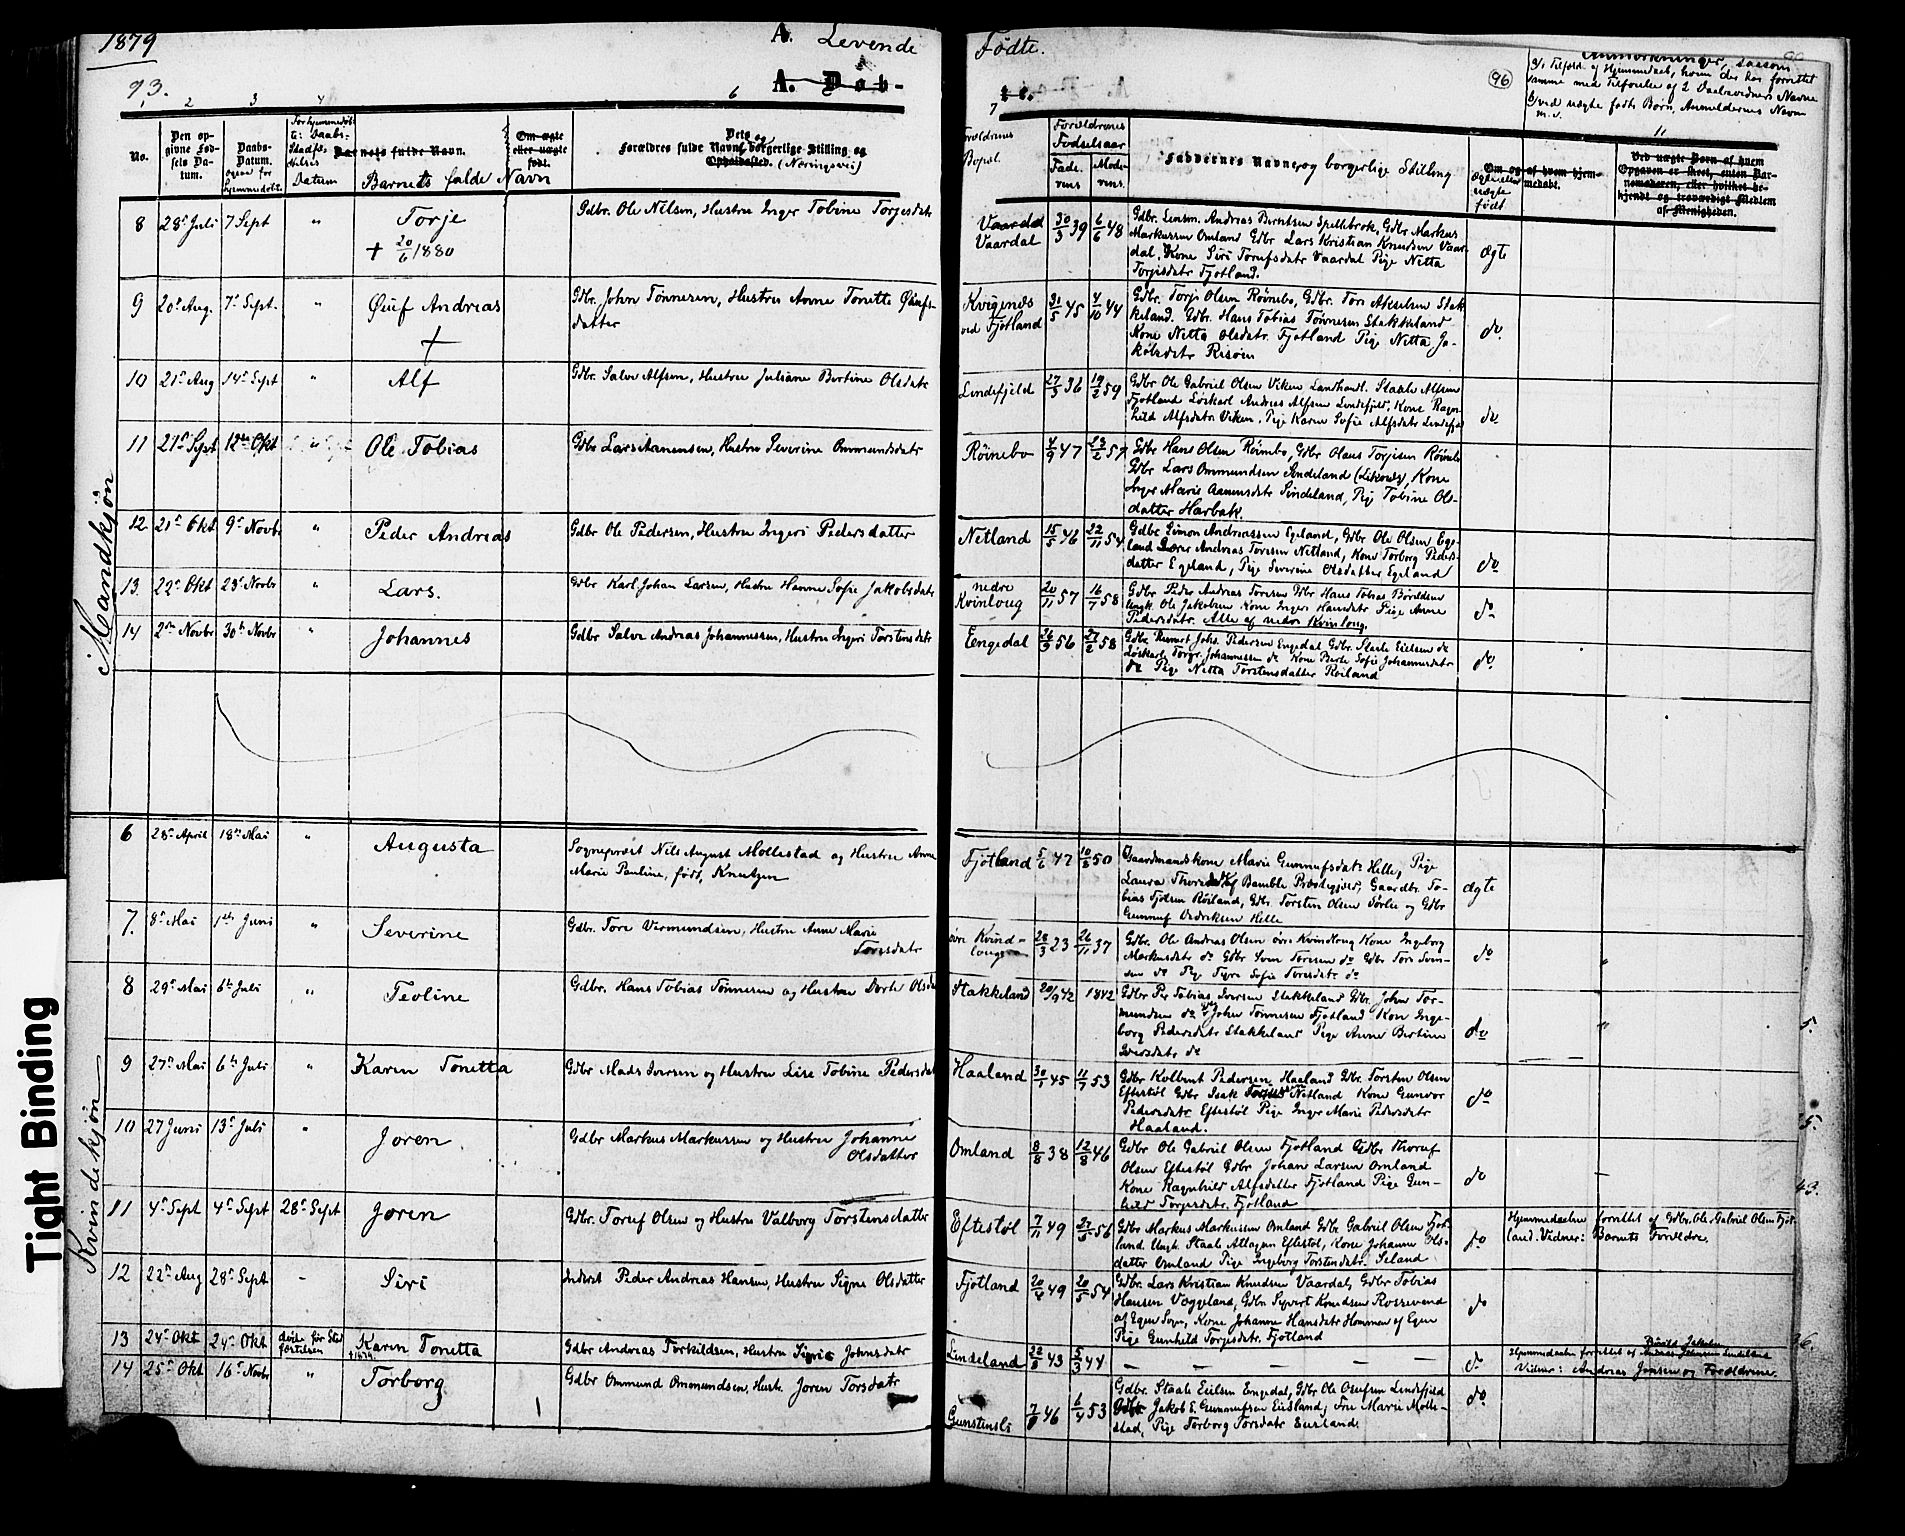 1879
A. Levende
Fødte.
93.
A. Døb-
96
Anmærkninger, saasom
a/ Tilføid. af Hjemmedaab, hvem der har forrettet
samme med Tilføielse af 2 Daabsvidners Navne
b/ ved uægte fødte Børn, Anmelderens Navn
m.v.
2 3 4 6 7 11
No.
Den opgivne Fødsels Datum.
Daabs-Datum.
Barnets fulde Navn.
Barnets fulde Navn
Om ægte eller uægte født.
Forældres fulde Navne, og borgerlige Stilling og
Opholdssted. (Næringsvei)
Forældrenes Bopæl.
Forældrenes Fødselsaar
Faderens
Moderens
Faddernes Navne, og borgerlige Stilling
Om og af hvem hjemmedøbt.
Ægte eller uægte født
Mandkjøn
8 28d Juli 7 Sept " Torje
+ 20/6 1880
Gdbr. Ole Nilsen, Hustru Inger Tobine Torgesdatr
Vaardal
Vaardal 30/3 39 6/6 48
Gdbr. Lensm. Andreas Berntsen Spellebrok, Gdbr Markus
Markussen Omland Gdbr Lars Kristian Knudsen Vaar-
dal, Kone Siri Torufsdatr Vaardal Pige Netta
Torjisdatr Fjotland.
Ægte
9 20d Aug. 7d Sept. " Øuf Andreas
+
Gdbr. John Tønnesen, Hustru Anne Tonette Øuufs-
datter
Kvigenes
ved Fjotland 31/5 45 4/10 44
Gdbr. Torje Olsen Rønebo, Gdbr. Tore Akselsen Stak-
keland. Gdbr. Hans Tobias Tønnesen Stakkeland
Kone Netta Olsdatr. Fjotland Pige Netta Ja-
kobsdatr Risøien
do.
10 21d Aug 14d Sept " Alf
Gdbr. Salve Alfsen, Hustru Juliane Bertine Olsdatr
Lindefjeld 27/3 36 19/2 59
Gdbr Ole Gabriel Olsen Viken Landhandl. Staale Alfsen
Fjotland Løskarl Andreas Alfsen Lindefjeld, Kone Ragn-
hild Alfsdatr Viken, Pige Karen Sofie Alfsdatr Lindefjeld
do
11 21d Sept 12te Okt Ole Tobias
Gdbr Lars Aanensen, Hustru Severine Ommundsdatr
Røinebo 4/9 47 23/2 57
Gdbr Hans Olsen Rømebo, Gdbr Olaus Torjisen Røinebo
Gdbr Lars Ommundsen Sindeland, Kone
Inger Marie Aanensdatr Sindeland, Pig Tobine Ols-
datter Harbak.
12 21d Okt 9d Novbr " Peder Andreas
Gdbr Ole Pedersen, Hustru Ingeri Pedersdatter
Netland 15/5 46 22/11 54
Gdbr Simon Andreassen Egeland, Gdbr Ole Olsen Ege-
land Lærer Andreas Toresen Netland, Kone Torborg Peders-
datter Egeland, Pige Severine Olsdatter Egeland
do
13. 22d Okt 23d Novbr " Lars.
Gdbr Karl Johan Larsen, Hustru Hanne Sofie Jakobsdatr
nedre
Kvinloug 20/11 57 16/7 58
Gdbr Peder Andreas Toresen Gdbr Hans Tobias Bårdsen
Ungk. Ole Jakobsen Kone Inger Hansdatr Pige Anne
Pedersdatr. Alle af nedre Kvinloug.
do
14 2den Novbr 30te Novbr " Johannes
Gdbr Salve Andreas Johannessen, Hustru Ingeri Torstensdatr
Eengedal 26/9 56 27/2 58
Gdbr. Johs. Pedersen Engedal, Gdbr. Staale Eielsen do
Løskarl Torgr. Johannessen do Kone Berte Sofie Johannesdatr
do Pige Netta Torstensdatter Røiland
do.
Kvindekjøn
6 23d April 18de Mai " Augusta
Sognepræst Nils August Mollestad og Hustru Anne
Marie Pauline, født, Knutzen
Fjotland 5/6 47 10/8 50
Gaardmandskone Marie Gunnufsdatr Helle, Pige
Laura af Bamble Præstegjeld, Gaardbr. To-
bias Fjelsen Røiland, Gdbr. Torsten Olsen Sørlie og Gdbr
Gunnuf Vedriksen Helle
ægte
7. 8d Mai 1ste Juni " Severine
Gdbr. Tore Vermundsen, Hustru Anne Marie
Toresdatr
øvre Kvind-
loug 28/3 23 26/11 37
Gdbr. Ole Andreas Olsen øvre Kvindloug Kone Ingeborg
Markusdatr do Gdbr Sven Toresen do Gdbr Tore Sven-
sen do Pige Tyre Sofie Toresdatr do
do "
8 29d Mai 6te Juli " Teoline
Gdbr. Hans Tobias Tønnesen og Hustru Dorte Olsdatr
Stakkeland 20/9 42 1842
Gdbr Per Tobias Iversen Stakkeland Gdbr. John Tor-
mundsen do John Tønnesen Fjotland Kone Inge-
borg Pedersdatr Stakkeland Pige Anne Bertine
Iversdatr do
do "
9 27d Mai 6te Juli " Karen Tonetta
Gdbr Mads Iversen og Hustru Lise Tobine Pedersdatr
Haaland 30/1 45 11/7 53
Gdbr Kolbent Pedersen Haaland Gdbr. Torsten Olsen
Eftestøl Gdbr Isak Netland Kone Gunvor
Pedersdatr Eftestøl Pige Inger Marie Pedersdatr
Haaland.
do
10 27 Juni 13d Juli " Joren
Gdbr Markus Markussen og Hustru Johanne
Olsdatter
Omland 8/8 38 12/8 46
Gdbr Ole Gabriel Olsen Fjotland Gdbr Thoruf
Olsen Eftestøl Gdbr Johan Larsen Omland
Kone Ragnhild Alfsdatter Fjotland Pige Gun-
hild Torjesdatr. Fjotland
do
11 4d Sept 4d Sept 28d Sept Joren
Gdbr. Toruf Olsen og Hustru Valborg Torstensdatter
Eftestøl 7/11 49 27/5 56
Gdbr Markus Markussen Omland Gdbr Gabriel Olsen Fjot-
land. Ungk. Staale Atlagsen Eftestøl, Kone Johanne Ols-
datter Omland Pige Ingeborg Torstensdatr. Seland
do
Hjemmedaaben forrettet af Gdbr. Ole Gabriel Olsen Fjot-
land. Vidner: Barnets Forældre.
12 22d Aug 28d Sept - Siri
Inderst Peder Andreas Hansen, Hustru Signe Olsdatter
Fjotland 20/4 49 20/5 54
Gdbr. Lars Kristian Knudsen Vaardal, Gdbr Tobias
Hansen Væggeland, Gdbr Syvert Knudsen Rossevand
af Egen Sogn, Kone Johanne Hansdatr Hommen af Egen
Pige Gunhild Torgesdatr. Fjotland
do
13 24d Okt 24d Okt døde før Stadfæstelsen Karen Tonetta
Gdbr Andreas Torkildsen, Hustru Sigrie Johnsdatr
Lindeland 22/8 43 5/3 44
— — — — —
do
Hjemmedaaben forrettet af
Vidner: Andreas Jensen og Forældrene.
14 25d Okt 16d Novbr " Torborg
Gdbr Ommund Ommundsen, Hustr. Joren Torsdatr
Gunstensli 7/8 46 6/4 53
Gdbr. Staale Eielsen Engedal, Gdbr Ole Osufsen Lindefjeld
Gdbr Jakob E. Gunnufsen Eiesland, Fru Marie Molle-
stad, Pige Torborg Torsdatr Eiesland.
do
Tight Binding